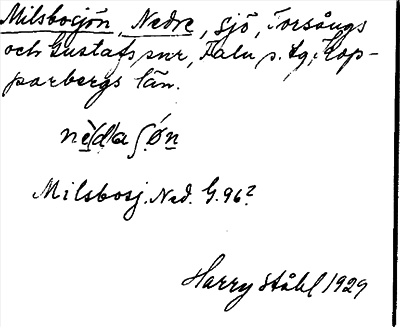 Milsbosjön, Nedre, sjö, Torsångs
och Gustafs snr, Falu s. tg, Kop-
parbergs län.
Milsbosj. Ned. G. 96?
Harry Ståhl 1929